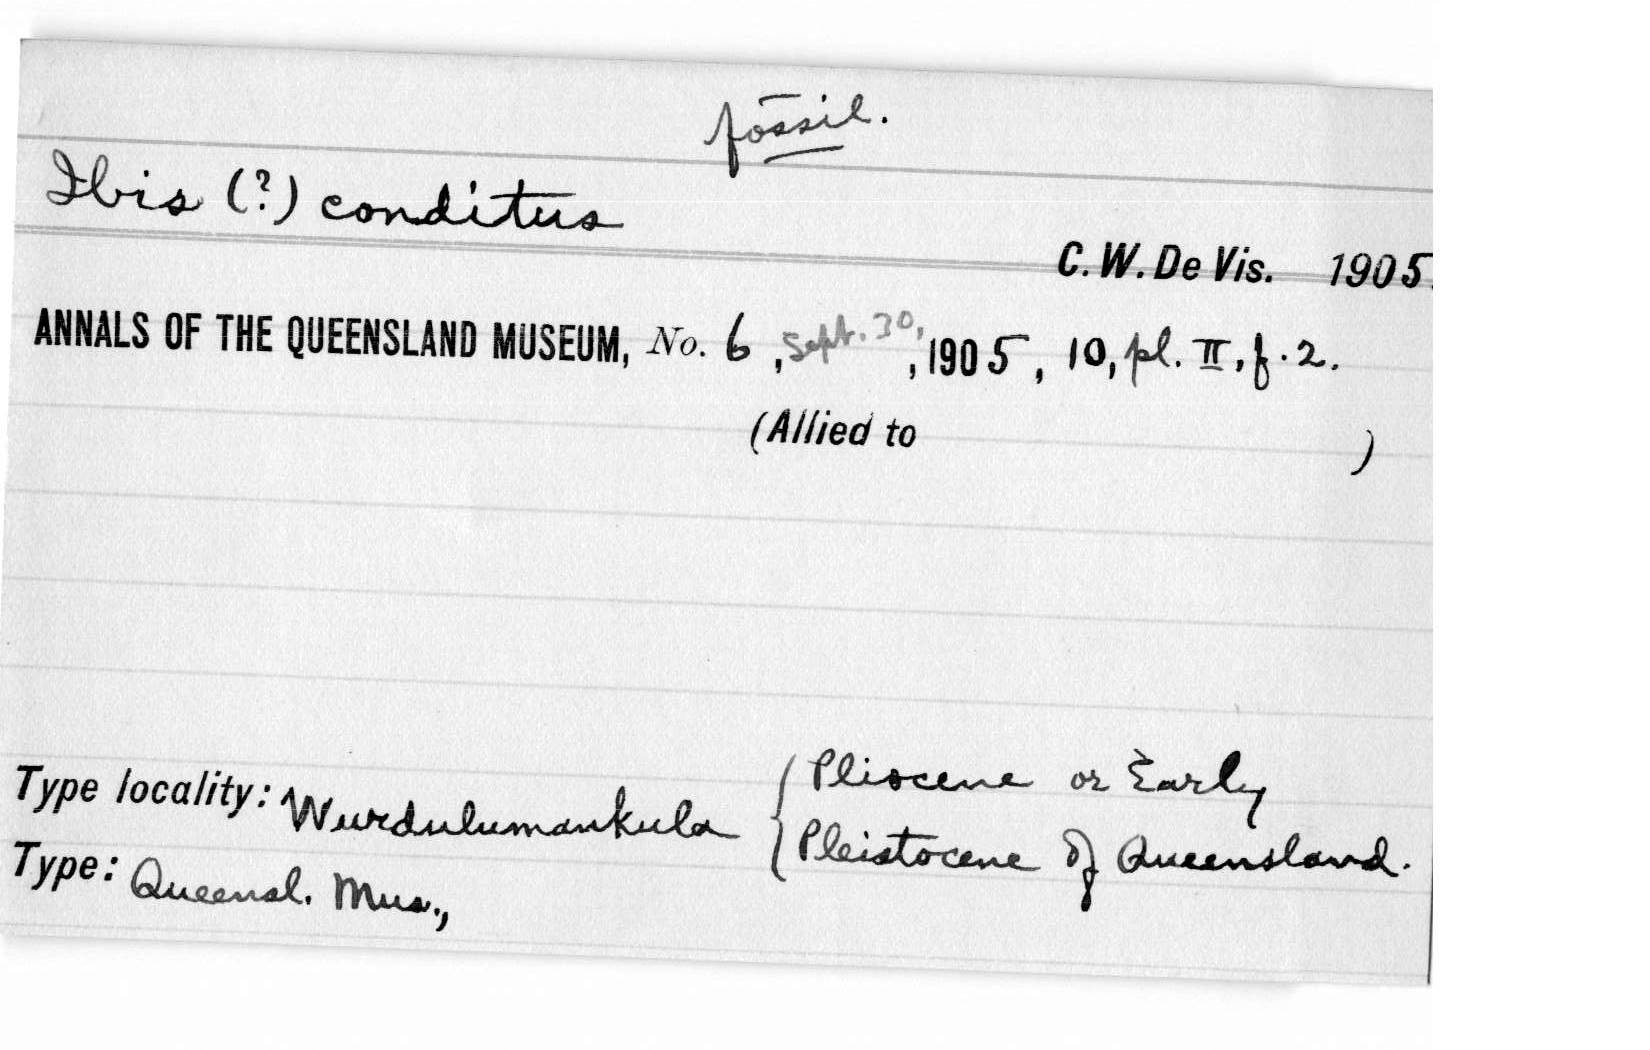 fossil.
Ibis (?) conditus
C. W. De Vis. 1905.
ANNALS OF THE QUEENSLAND MUSEUM, No. 6, Sept. 30, , 1905, 10, pl. II, f. 2.
(Allied to )
Type locality: Wurdulumankula { Pliocene or Early
Pleistocene of Queensland.
Type: Queensl. Mus.,